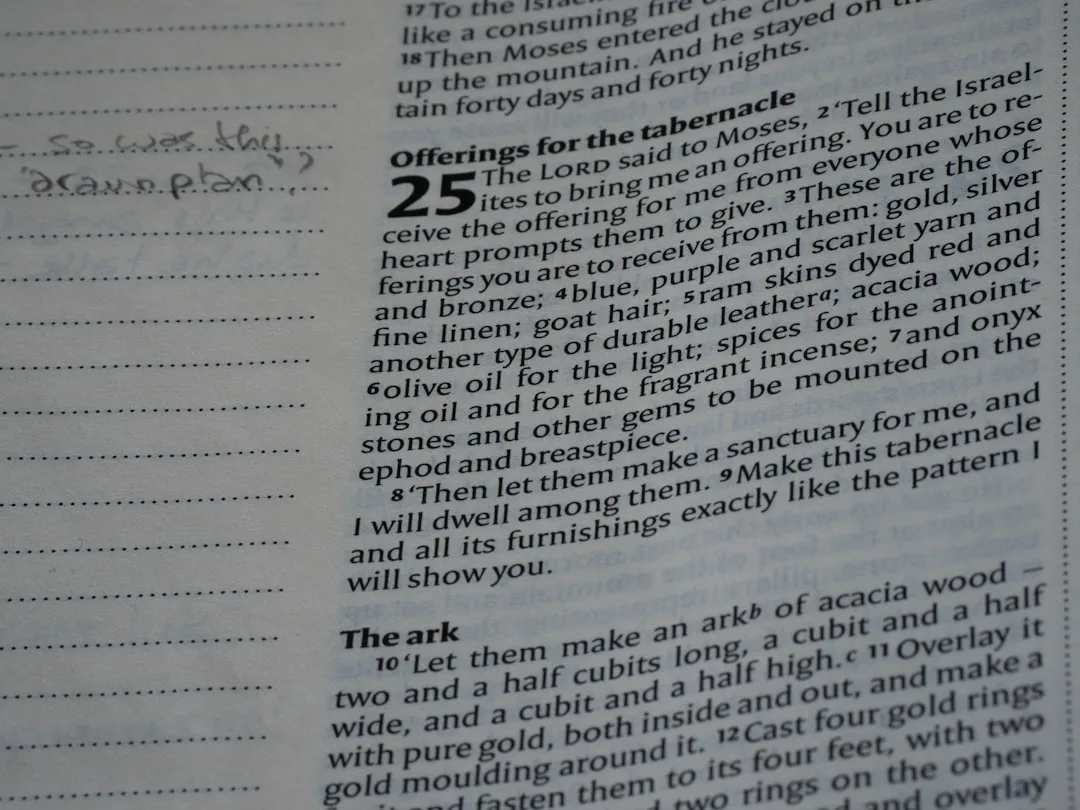 - so was this
"drawn plan"?
17 To the
like a consuming fire
18 Then Moses entered the
up the mountain. And he stayed on
tain forty days and forty nights.
Offerings for the tabernacle
25 The LORD said to Moses, 2 ‘Tell the Israel-
ites to bring me an offering. You are to re-
ceive the offering for me from everyone whose
heart prompts them to give. 3 These are the of-
ferings you are to receive from them: gold, silver
and bronze; 4 blue, purple and scarlet yarn and
fine linen; goat hair; 5 ram skins dyed red and
another type of durable leather a; acacia wood;
6 olive oil for the light; spices for the anoint-
ing oil and for the fragrant incense; 7 and onyx
stones and other gems to be mounted on the
ephod and breastpiece.
8 ‘Then let them make a sanctuary for me, and
I will dwell among them. 9 Make this tabernacle
and all its furnishings exactly like the pattern I
will show you.
The ark
10 ‘Let them make an ark b of acacia wood –
two and a half cubits long, a cubit and a half
wide, and a cubit and a half high. c 11 Overlay it
with pure gold, both inside and out, and make a
gold moulding around it. 12 Cast four gold rings
fasten them to its four feet, with two
two rings on the other.
and overlay